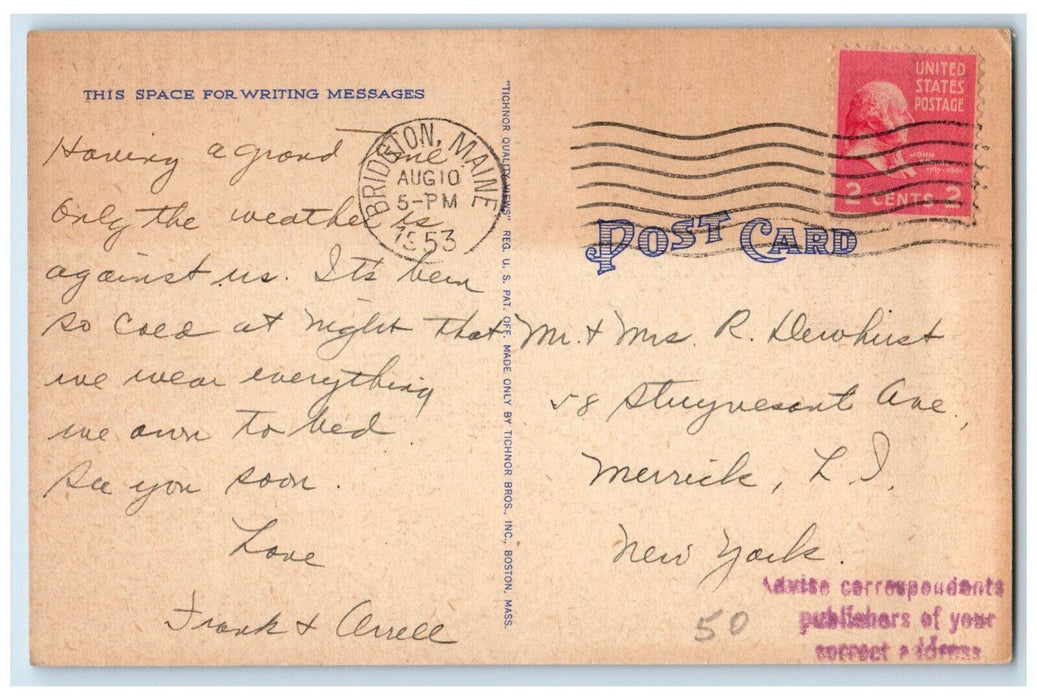 THIS SPACE FOR WRITING MESSAGES
Having a grand time
Only the weather is
against us. It's been
so cold at night that
we wear everything
we own to bed.
See you soon.
Love
Frank &
BRIDGTON, MAINE
AUG 10
5-PM
1953
"TICHNOR QUALITY VIEWS" REG. U. S. PAT. OFF. MADE ONLY BY TICHNOR BROS., INC., BOSTON, MASS.
UNITED
STATES
POSTAGE
JOHN
1797-1801
2 CENTS 2
POST CARD
Mr. & Mrs. R. Dewhirst
58 Stuyvesant Ave.
Merrick, L. I.
New York.
50
Advise correspondents
publishers of your
correct address